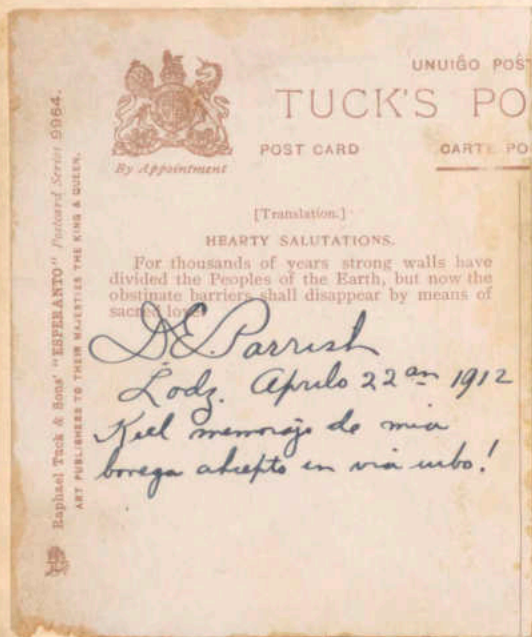 UNUIĜO POST
TUCK'S PO
POST CARD
CARTE PO
By Appointment
[Translation.]
HEARTY SALUTATIONS.
For thousands of years strong walls have
divided the Peoples of the Earth, but now the
obstinate barriers shall disappear by means of
sacred love.
D.E. Parrish
Lodz. Aprilo 22an 1912
Kiel memoraĵo de mia
bonega akcepto en via urbo!
Raphael Tuck & Sons' "ESPERANTO" Postcard Series 9964.
ART PUBLISHERS TO THEIR MAJESTIES THE KING & QUEEN.